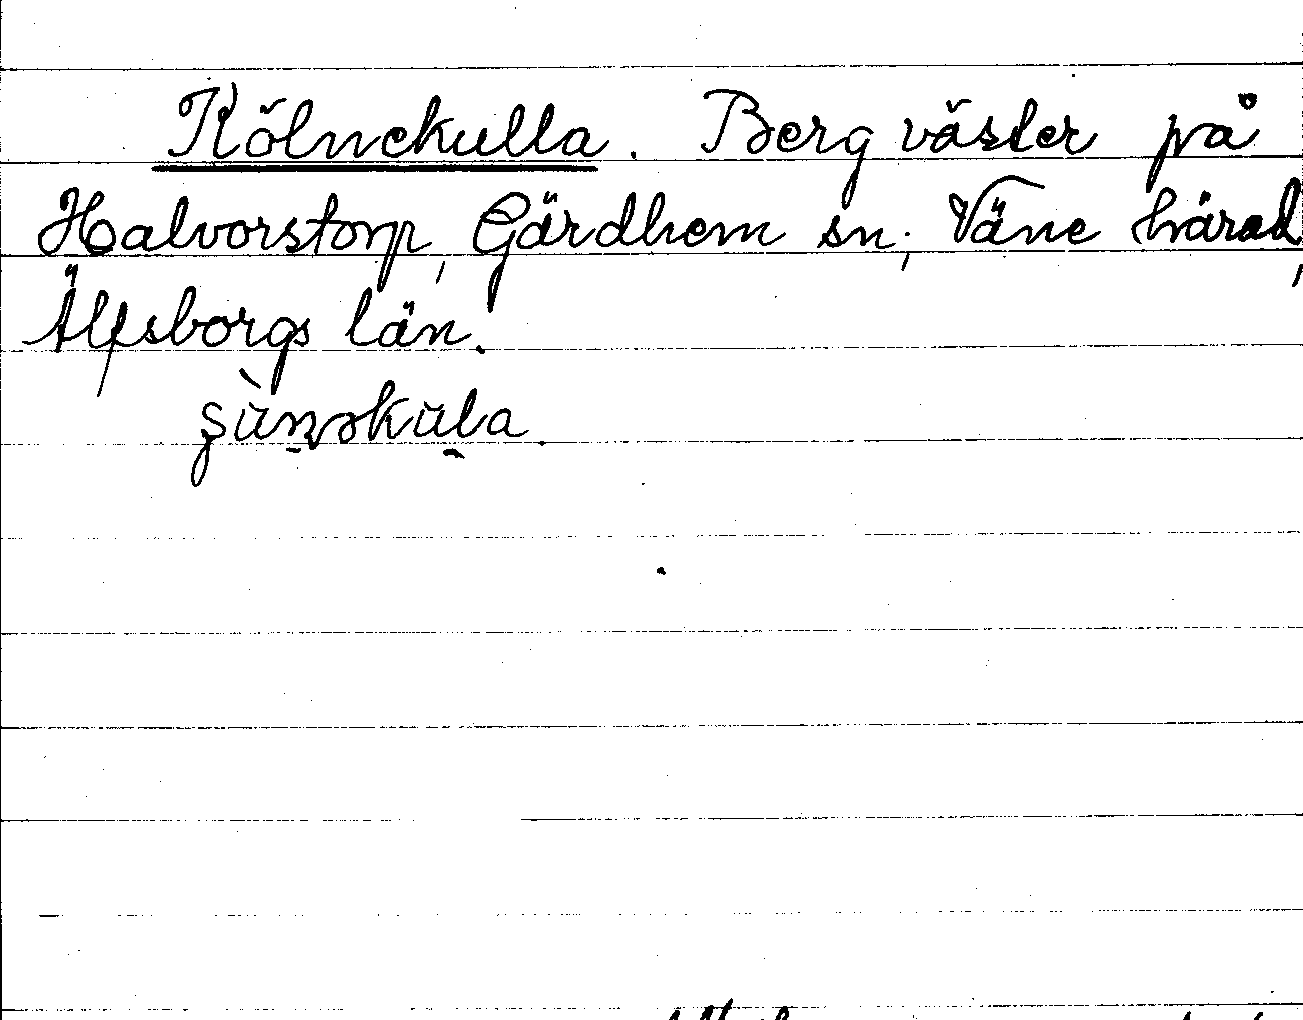 Kölnekulla. Berg väster på
Halvorstorp, Gärdhem sn; Väne härad,
Älfsborgs län.